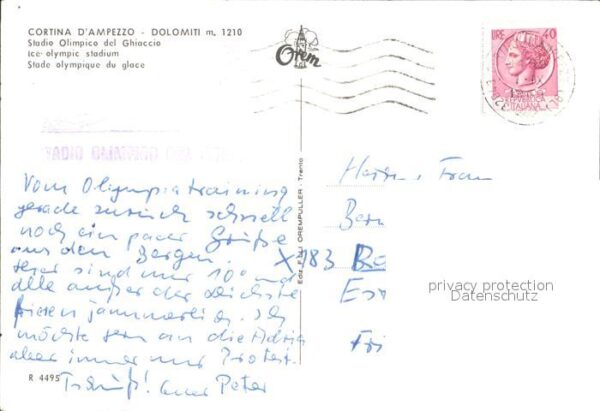 CORTINA D'AMPEZZO - DOLOMITI m. 1210
Stadio Olimpico del Ghiaccio
Ice-olympic stadium
Stade olympique du glace
Orem
LIRE 40
REPVBBLICA
ITALIANA
STADIO OLIMPICO DEL
Vom Olympiatraining
gerade zurück schnell
noch ein paar Grüße
aus den Bergen.
sind nur 10° und
alle außer der
frieren jämmerlich. Ich
möchte gern an die Adria
aber immer nur Protest.
Tschüß! Euer Peter
R 4495
Ediz. F.LLI OREMPULLER - Trento
Herrn u. Frau
Bern
X 983 Be
Fri
privacy protection
Datenschutz